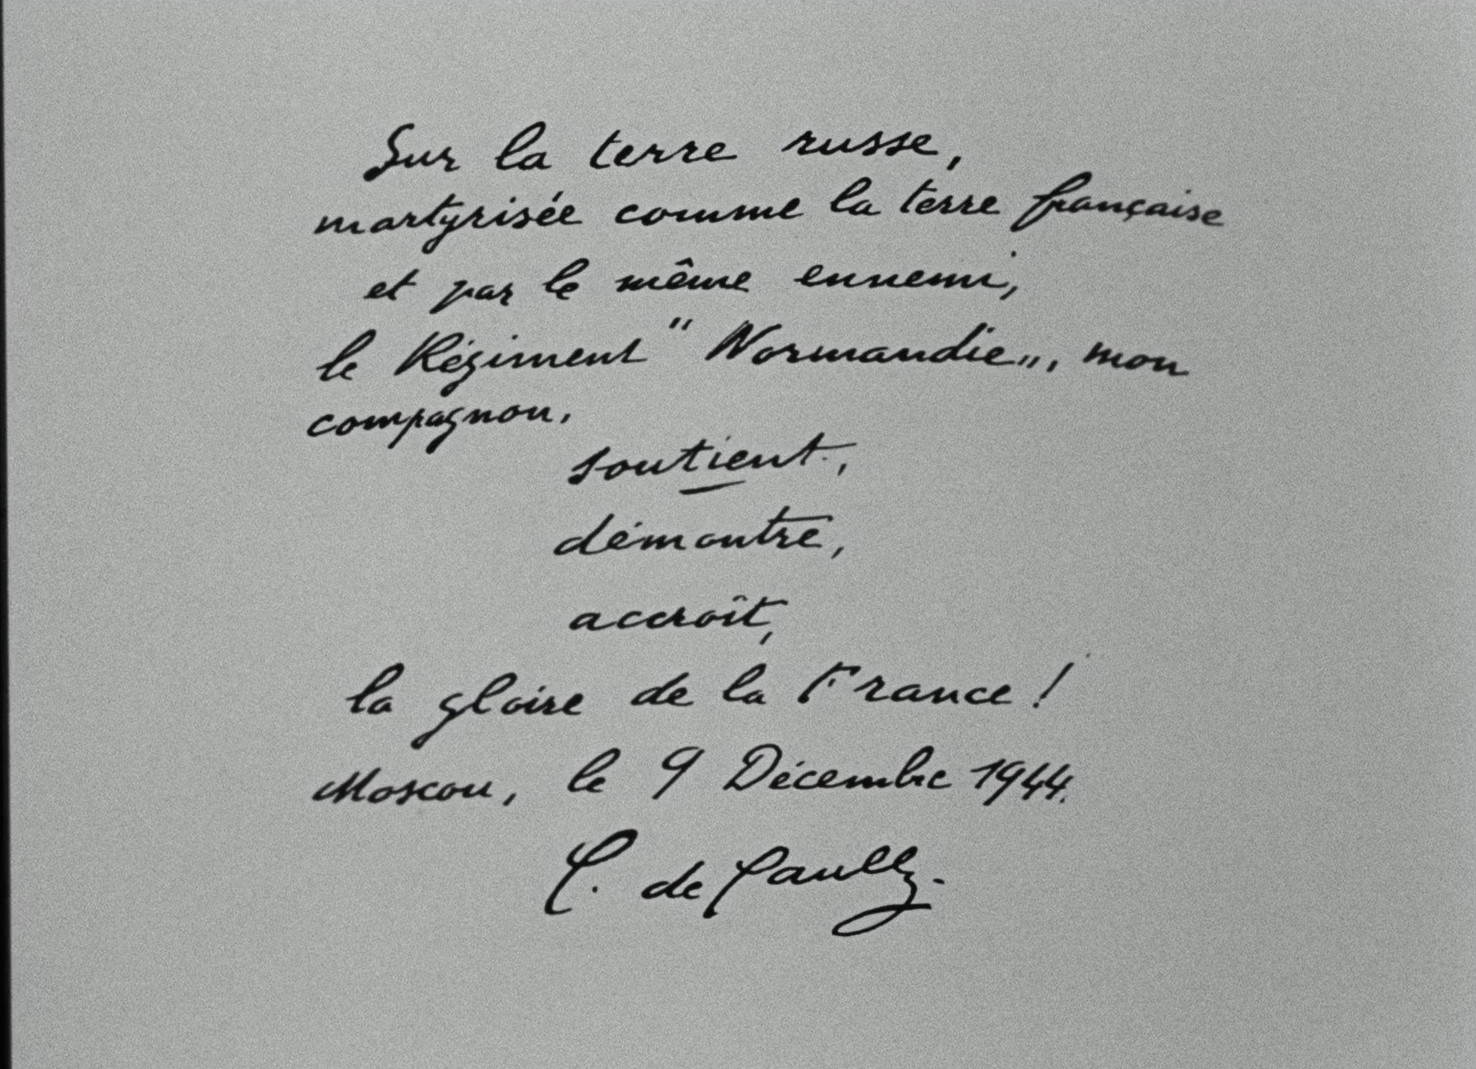 Sur la terre russe,
martyrisée comme la terre française
et par le même ennemi,
le Régiment "Normandie", mon
compagnon,
soutient,
démontre,
accroît,
la gloire de la France !
Moscou, le 9 Décembre 1944.
C. de Gaulle.